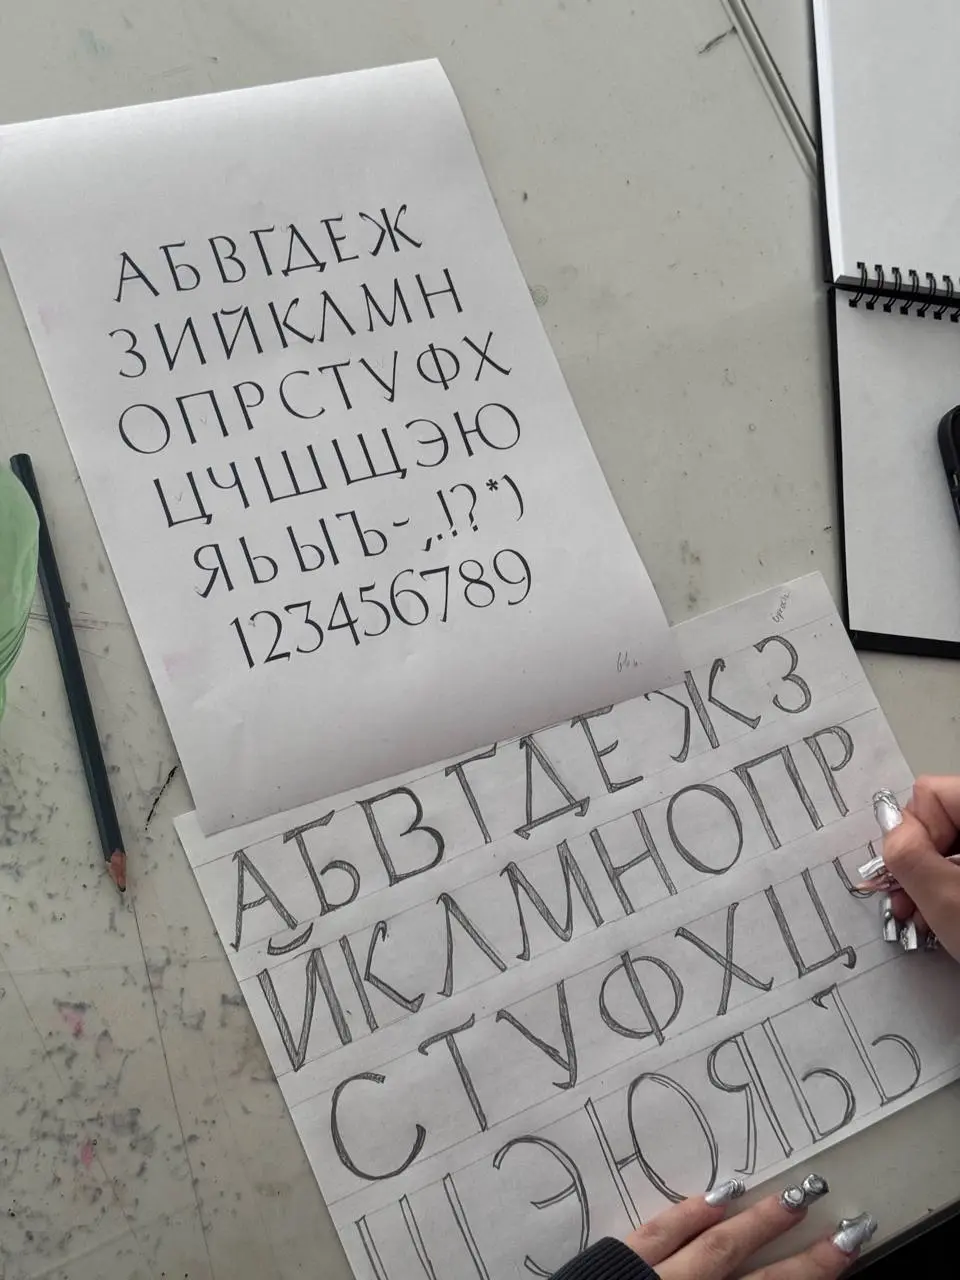 АБВГДЕЖ
ЗИЙКЛМН
ОПРСТУФХ
ЦЧШЩЭЮ
ЯЬЫЪ-,.!?*)
123456789
АБВГДЕЖЗ
ЙКЛМНОПР
СТУФХЦ
ЭЮЯЬЪ